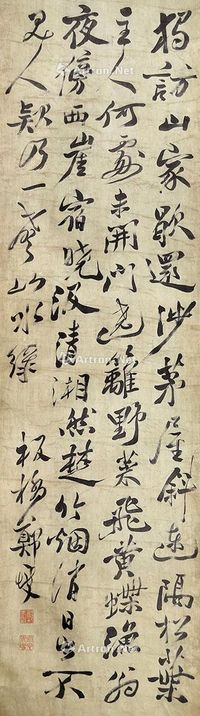 独訪山家歇還涉茅屋斜連隔松葉
主人何處未開門遶籬野菜飛黃蝶漁翁
夜傍西崖宿曉汲清湘然楚竹烟消日出不
見人欵乃一聲山水綠
板橋鄭燮